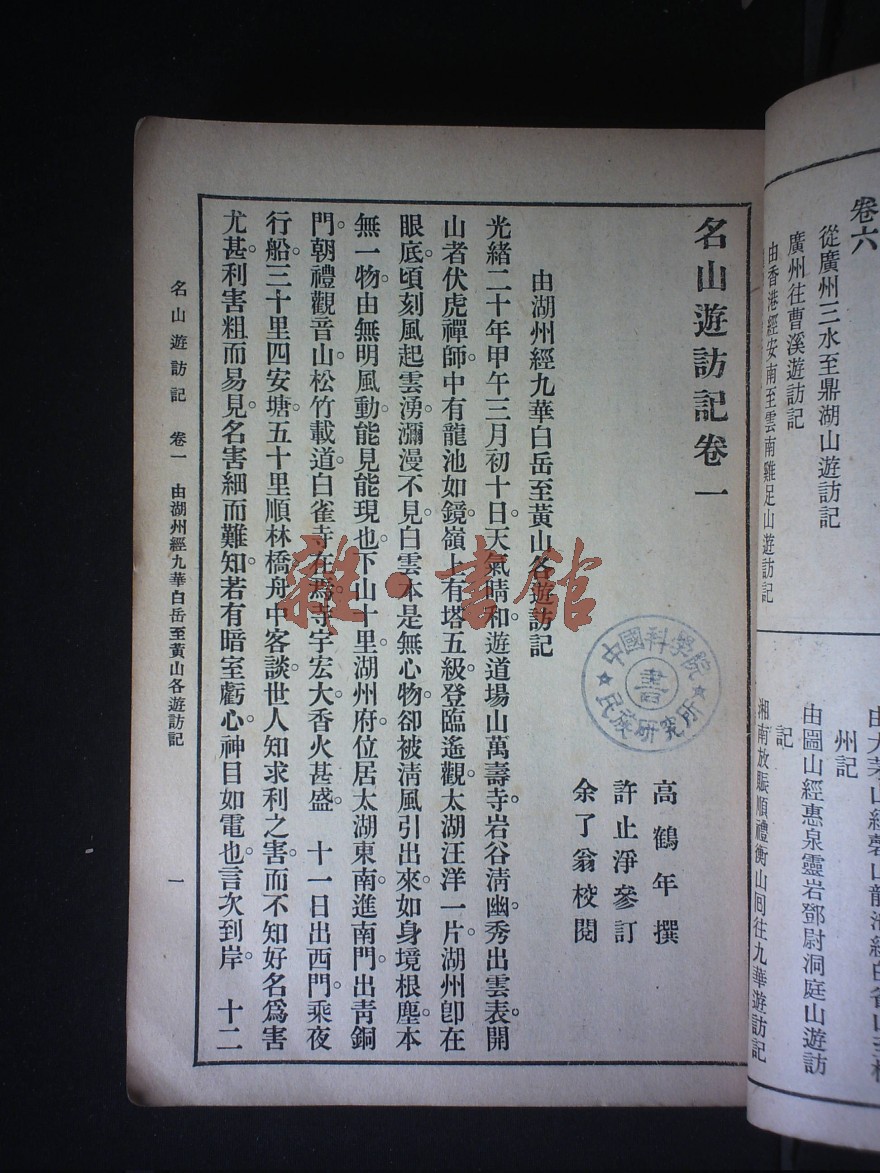 卷六
從廣州三水至鼎湖山遊訪記
廣州往曹溪遊訪記
由香港經安南至雲南雞足山遊訪記
州記
由圌山經惠泉靈岩鄧尉洞庭山遊訪
記
湘南放賑順禮衡山回往九華遊訪記
名山遊訪記卷一
高鶴年撰
許止淨參訂
余了翁校閱
由湖州經九華白岳至黃山各遊訪記
光緒二十年甲午三月初十日。天氣晴和。遊道場山萬壽寺。岩谷淸幽。秀出雲表。開
山者伏虎禪師。中有龍池如鏡。嶺上有塔五級。登臨遙觀。太湖汪洋一片。湖州卽在
眼底。頃刻風起雲湧。瀰漫不見。白雲本是無心物。卻被淸風引出來。如身境根塵。本
無一物。由無明風動。能見能現也。下山十里湖州府。位居太湖東南。進南門。出靑銅
門。朝禮觀音山。松竹載道。白雀寺在焉。寺宇宏大。香火甚盛。 十一日出西門。乘夜
行船。三十里四安塘。五十里順林橋。舟中客談。世人知求利之害。而不知好名爲害
尤甚。利害粗而易見。名害細而難知。若有暗室虧心。神目如電也。言次到岸。 十二
名山遊訪記 卷一 由湖州經九華白岳至黃山各遊訪記 一
中國科學院
民族研究所
書
雜·書館